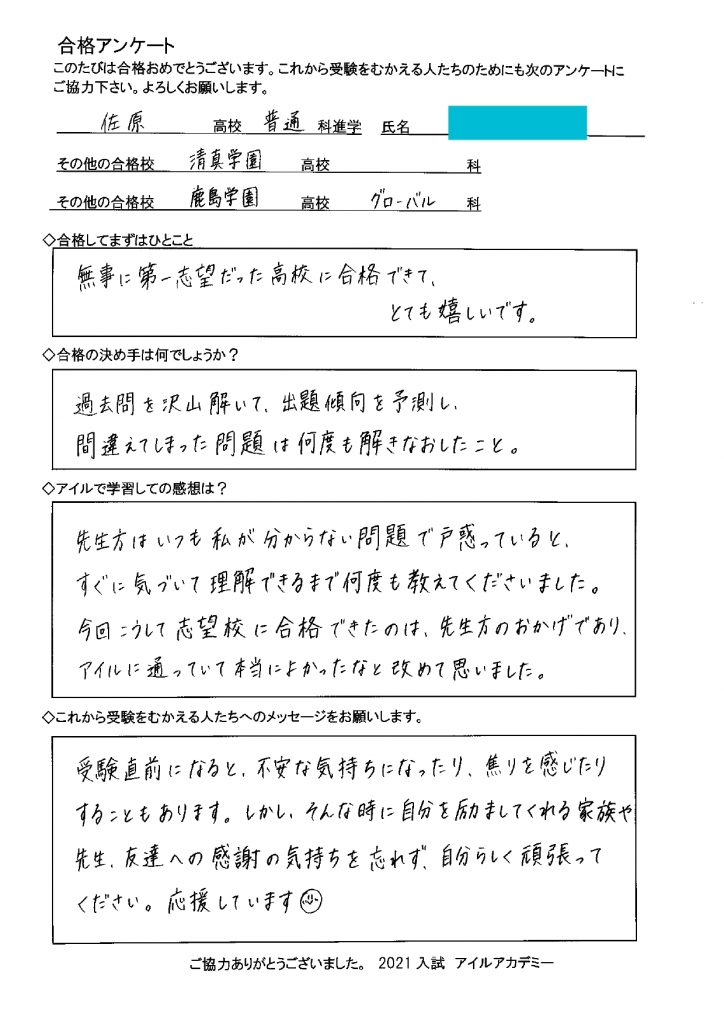 合格アンケート
このたびは合格おめでとうございます。これから受験をむかえる人たちのためにも次のアンケートに
ご協力下さい。よろしくお願いします。
佐原 高校 普通 科進学 氏名
その他の合格校 清真学園 高校 科
その他の合格校 鹿島学園 高校 グローバル 科
◇合格してまずはひとこと
無事に第一志望だった高校に合格できて、
とても嬉しいです。
◇合格の決め手は何でしょうか？
過去問を沢山解いて、出題傾向を予測し、
間違えてしまった問題は何度も解きなおしたこと。
◇アイルで学習しての感想は？
先生方はいつも私が分からない問題で戸惑っていると、
すぐに気づいて理解できるまで何度も教えてくださいました。
今回こうして志望校に合格できたのは、先生方のおかげであり、
アイルに通っていて本当によかったなと改めて思いました。
◇これから受験をむかえる人たちへのメッセージをお願いします。
受験直前になると、不安な気持ちになったり、焦りを感じたり
することもあります。しかし、そんな時に自分を励ましてくれる家族や
先生、友達への感謝の気持ちを忘れず、自分らしく頑張って
ください。応援しています☺
ご協力ありがとうございました。 2021入試 アイルアカデミー